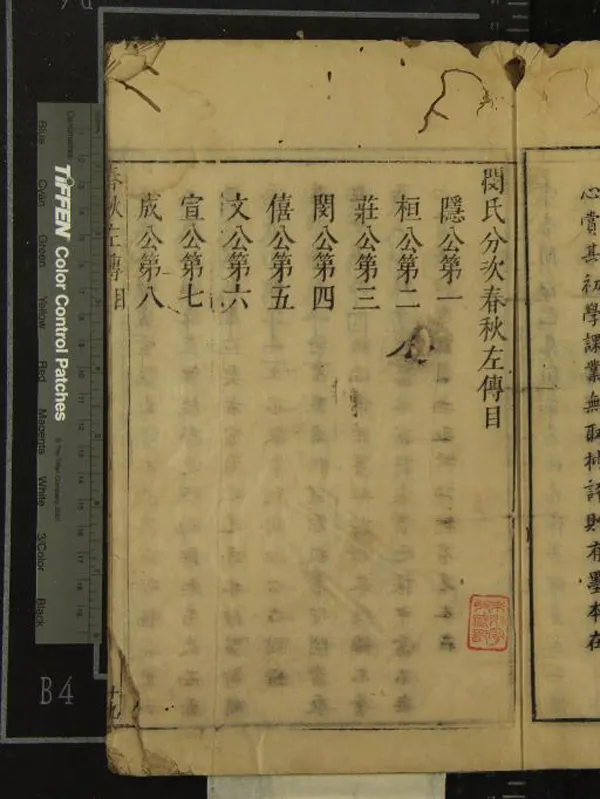 心賞其初學課業無取批評則有墨本在
閔氏分次春秋左傳目
隱公第一
桓公第二
莊公第三
閔公第四
僖公第五
文公第六
宣公第七
成公第八
春秋左傳目
TIFFEN Color Control Patches
© The Tiffen Company, 2007
Centimetres
Blue
Cyan
Green
Yellow
Red
Magenta
White
3/Color
Black
B4